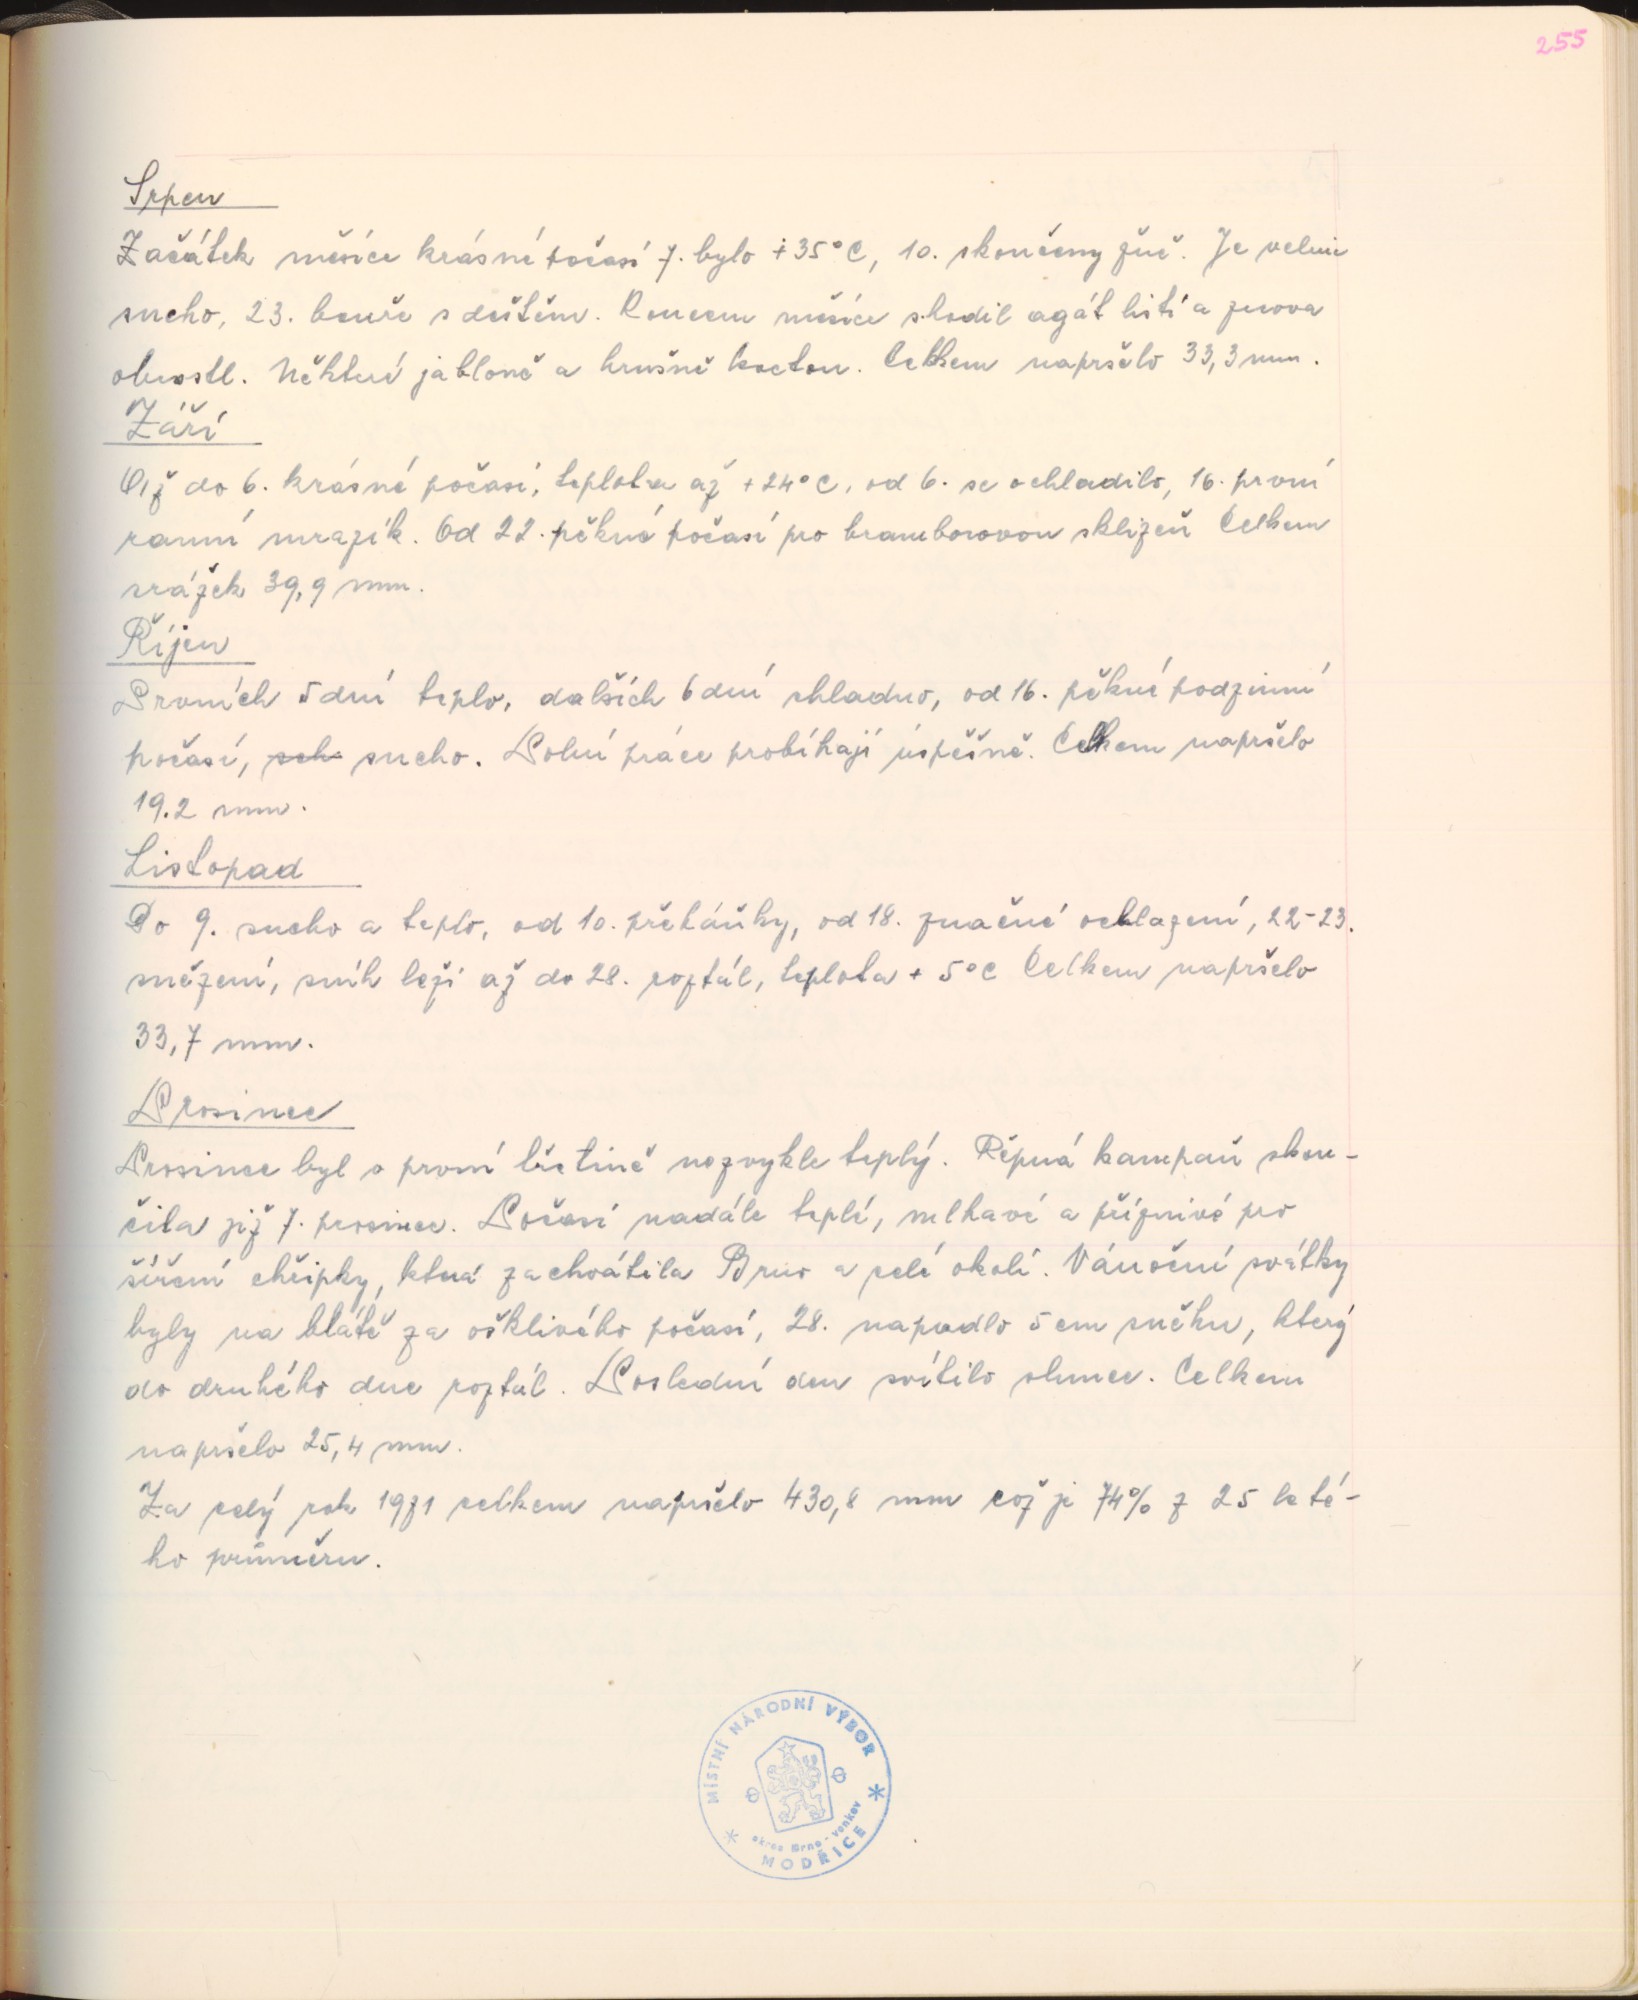 255
Srpen
Začátek měsíce krásné počasí 7. bylo +35°C, 10. skončeny žně. Je velmi
sucho, 23. bouře s deštěm. Koncem měsíce shodil agát listí a znova
obrostl. Některé jabloně a hrušně kvetou. Celkem napršelo 33,3 mm.
Září
Až do 6. krásné počasí, teplota až +24°C, od 6. se ochladilo, 16. první
ranní mrazík. Od 22. pěkné počasí pro bramborovou sklizeň Celkem
srážek 39,9 mm.
Říjen
Prvních 5 dní teplo, dalších 6 dní chladno, od 16. pěkné podzimní
počasí, sucho. Polní práce probíhají úspěšně. Celkem napršelo
19.2 mm.
Listopad
Do 9. sucho a teplo, od 10. přeháňky, od 18. značné ochlazení, 22-23.
sněžení, sníh leží až do 28. roztál, teplota + 5°C Celkem napršelo
33,7 mm.
Prosinec
Prosinec byl v první třetině nezvykle teplý. Řepná kampaň skon-
čila již 7. prosince. Počasí nadále teplé, mlhavé a příznivé pro
šíření chřipky, která zachvátila Brno a celé okolí. Vánoční svátky
byly na blátě za ošklivého počasí, 28. napadlo 5 cm sněhu, který
do druhého dne roztál. Poslední den svítilo slunce. Celkem
napršelo 25,4 mm.
Za celý rok 1971 celkem napršelo 430,8 mm což je 74% z 25 leté-
ho průměru.
MÍSTNÍ NÁRODNÍ VÝBOR
okres Brno - venkov
MODŘICE